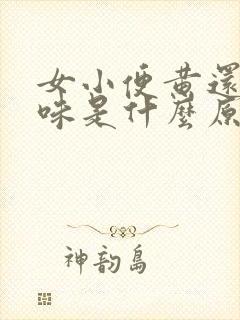 女小便黄還
味是什麼原
神韵島